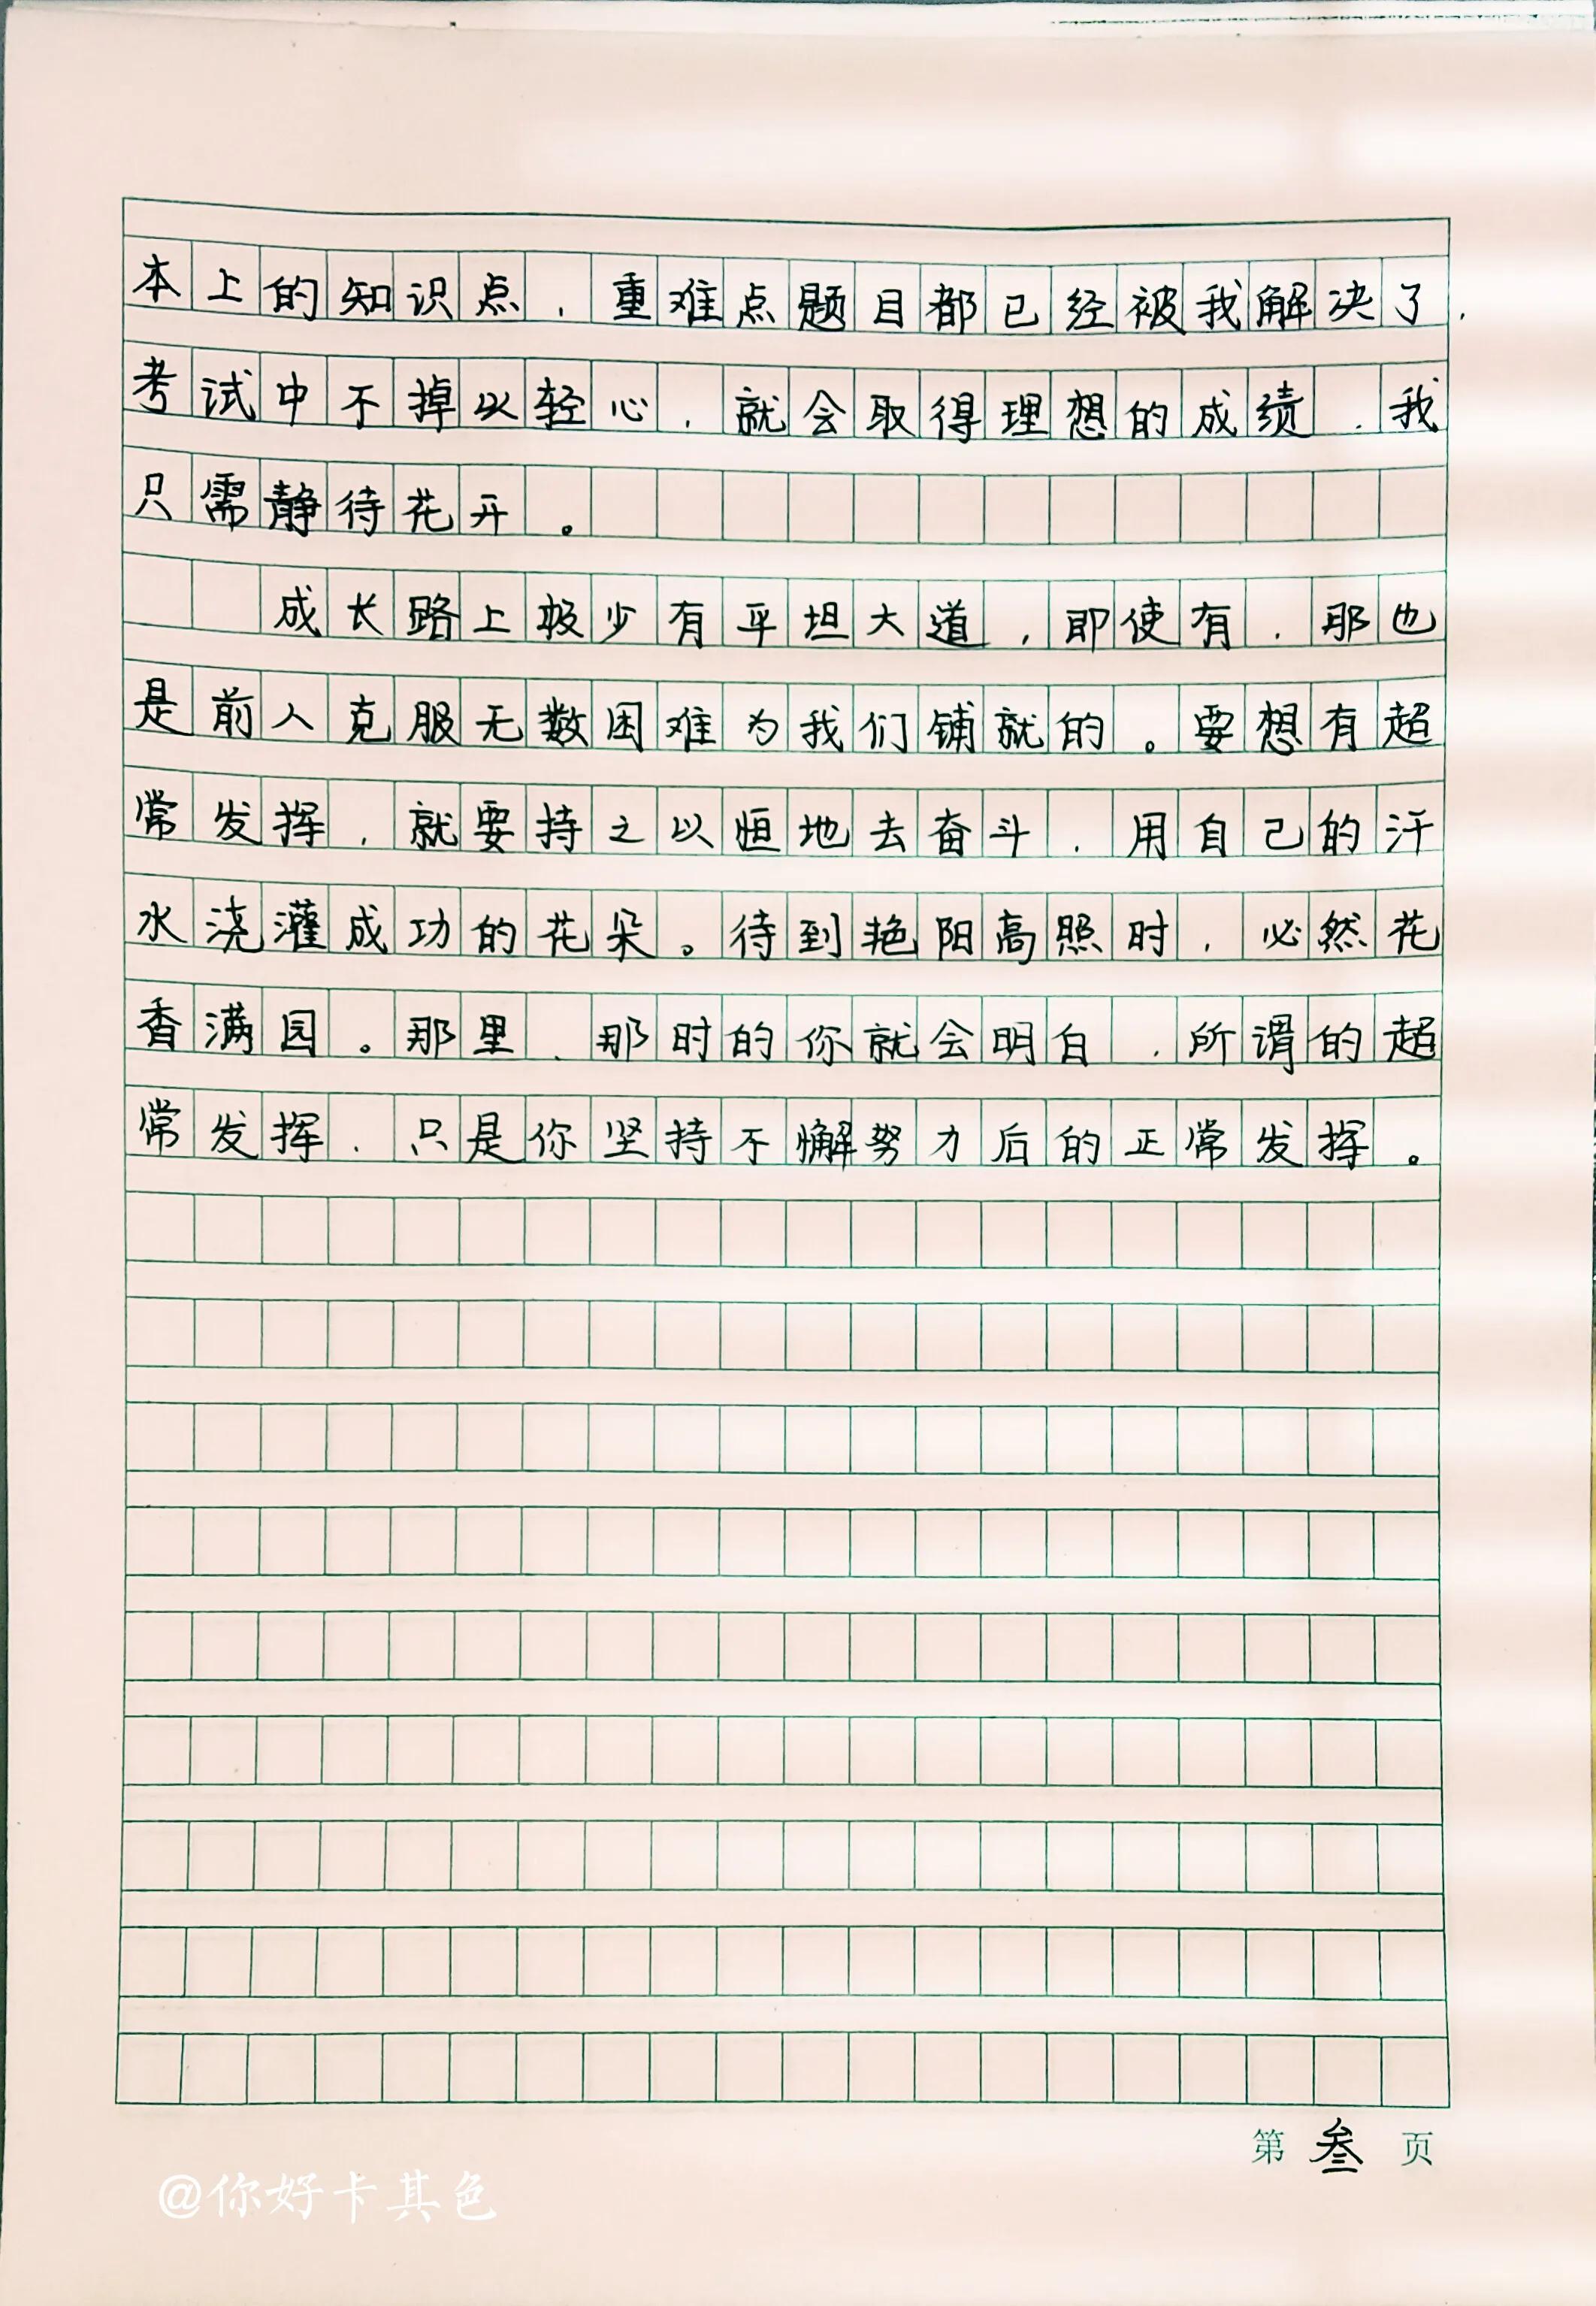 本上的知识点，重难点题目都已经被我解决了，
考试中不掉以轻心，就会取得理想的成绩，我
只需静待花开。
成长路上极少有平坦大道，即使有，那也
是前人克服无数困难为我们铺就的。要想有超
常发挥，就要持之以恒地去奋斗，用自己的汗
水浇灌成功的花朵。待到艳阳高照时，必然花
香满园。那里、那时的你就会明白，所谓的超
常发挥，只是你坚持不懈努力后的正常发挥。
第叁页
@你好卡其色